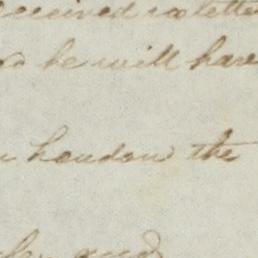 received no letter
he will have
London the
and